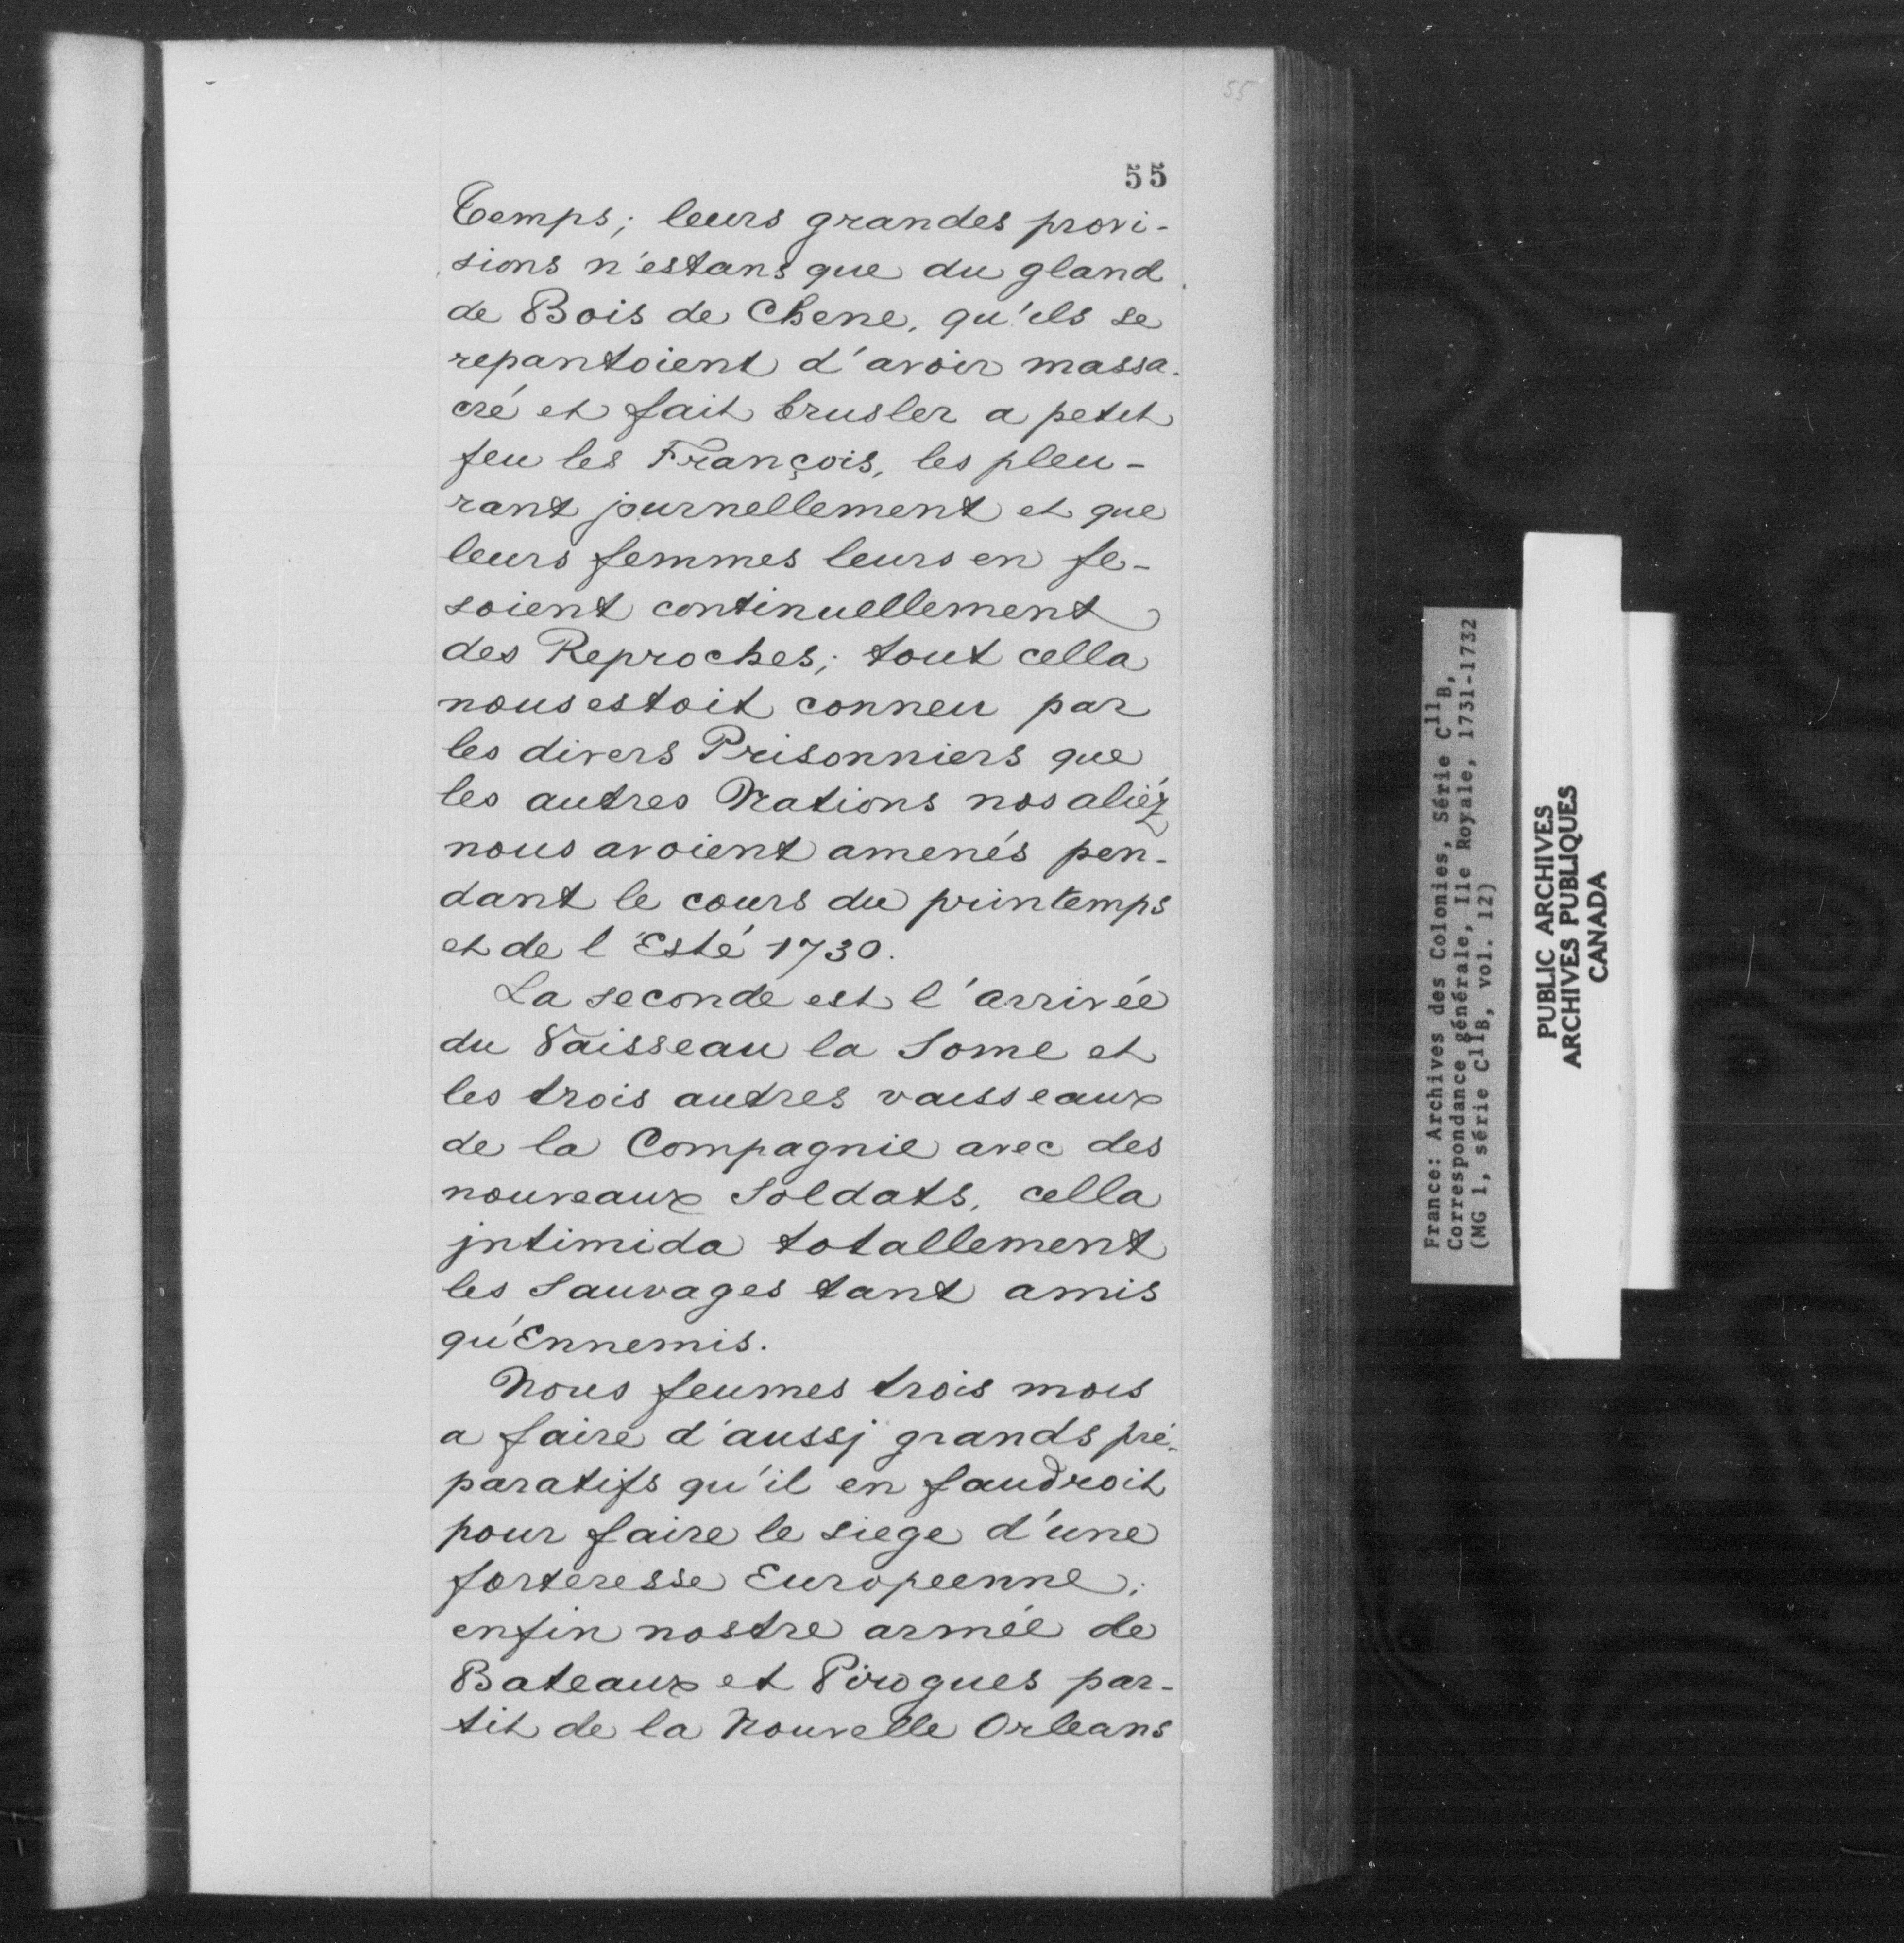 55
55
Temps; leurs grandes provi-
sions n'estans que du gland
de Bois de Chene, qu'ils se
repantoient d'avoir massa-
cré et fait brusler a petit
feu les François, les pleu-
rant journellement et que
leurs femmes leurs en fe-
soient continuellement
des Reproches; tout cella
nous estoit conneu par
les divers Prisonniers que
les autres Nations nos aliéz
nous avoient amenés pen-
dant le cours du printemps
et de l'Esté 1730.
La seconde est l'arrivée
du Vaisseau la Some et
les trois autres vaisseaux
de la Compagnie avec des
nouveaux Soldats, cella
jntimida totallement
les Sauvages tant amis
qu'Ennemis.
Nous feumes trois mois
a faire d'aussj grands pré-
paratifs qu'il en faudroit
pour faire le siege d'une
forteresse Europeenne;
enfin nostre armée de
Bateaux et Pirogues par-
tit de la Nouvelle Orleans
France: Archives des Colonies, Série C11B,
Correspondance générale, Ile Royale, 1731-1732
(MG 1, série C11B, vol. 12)
PUBLIC ARCHIVES
ARCHIVES PUBLIQUES
CANADA